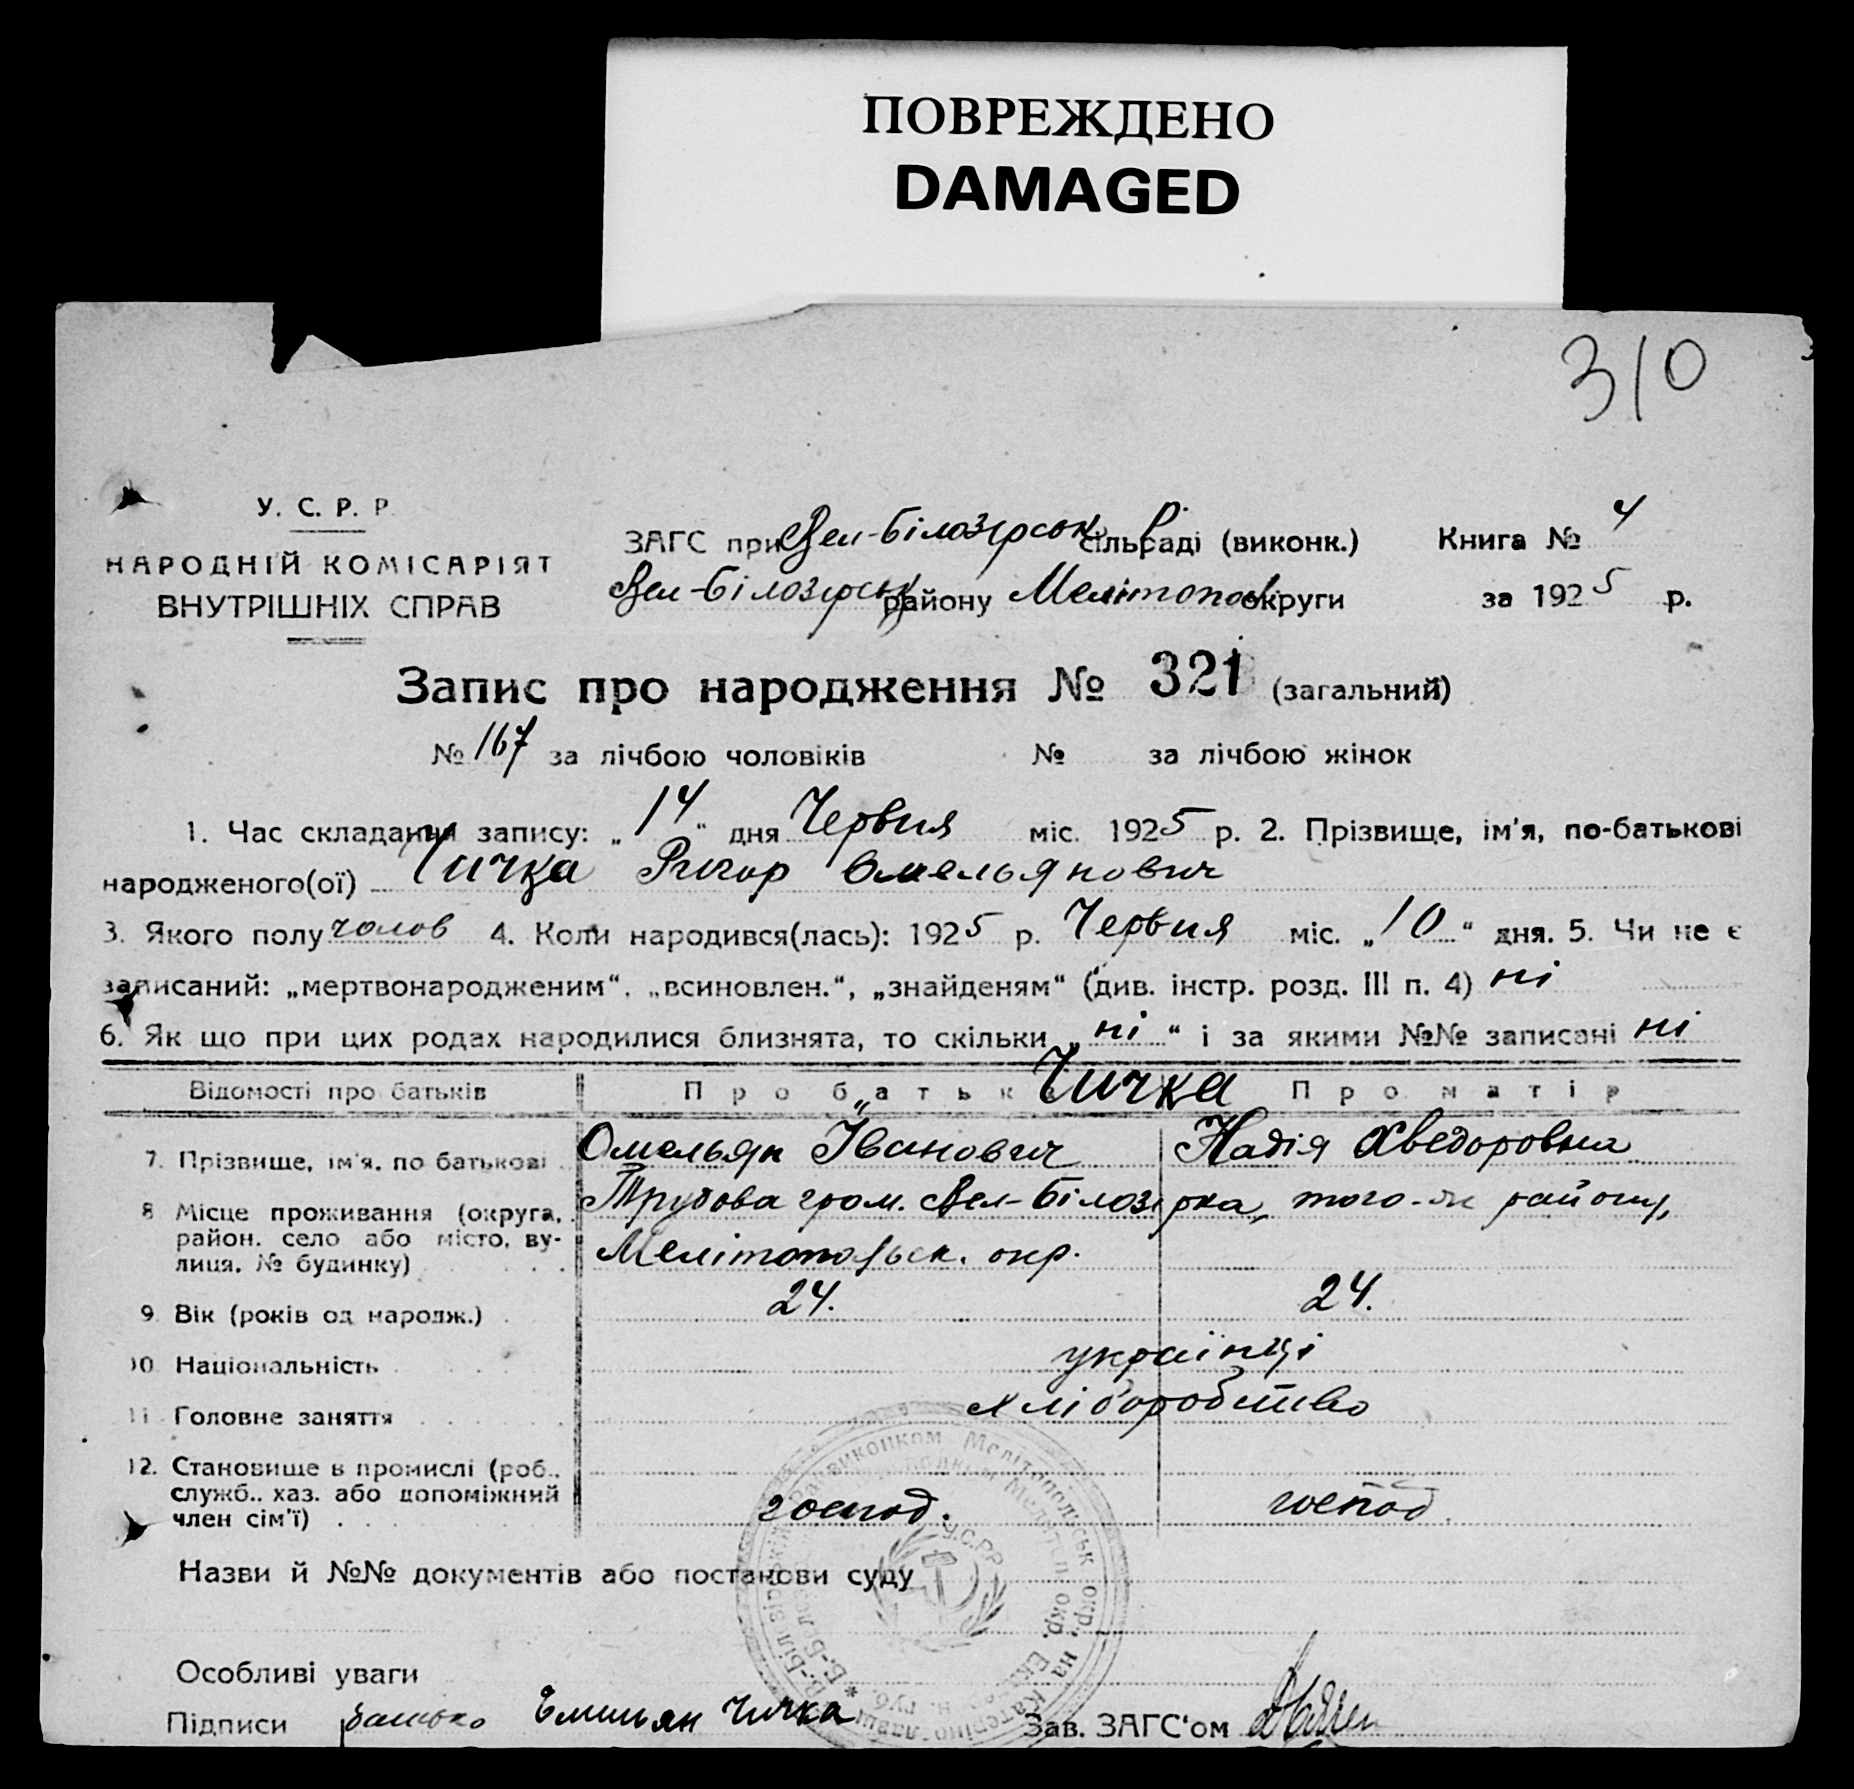 ПОВРЕЖДЕНО
DAMAGED
310
У. С. Р. Р.
НАРОДНІЙ КОМІСАРІЯТ
ВНУТРІШНІХ СПРАВ
ЗАГС при Вел-Білозірськ. сільраді (виконк.) Книга № 4
Вел-Білозірськ району Мелітопол округи за 1925 р.
Запис про народження № 321 (загальний)
№ 167 за лічбою чоловіків № за лічбою жінок
1. Час складання запису: „14“ дня Червня міс. 1925 р. 2. Прізвище, ім'я, по-батькові
народженого(ої) Чичка Григор Омельянович
3. Якого полу чолов 4. Коли народився(лась): 1925 р. Червня міс. „10“ дня. 5. Чи не є
записаний: „мертвонародженим“, „всиновлен.“, „знайденям“ (див. інстр. розд. III п. 4) ні
6. Як що при цих родах народилися близнята, то скільки „ні“ і за якими №№ записані ні
Відомості про батьків Про батьк Чичка Про матір
7. Прізвище, ім'я, по батькові Омельян Іванович Надія Хведоровна
8 Місце проживання (округа, район, село або місто, вулиця, № будинку) Трудова гром. Вел-Білозірка, того-ж району,
Мелітопольськ. окр.
9 Вік (років од народж.) 24. 24.
10 Національність українці
11 Головне заняття хліборобство
12. Становище в промислі (роб.,
служб., хаз. або допоміжний
член сім'ї) господ. господ.
Назви й №№ документів або постанови суду
Особливі уваги
Підписи батько Емильян Чичка Зав. ЗАГС'ом
У.С.Р.Р.